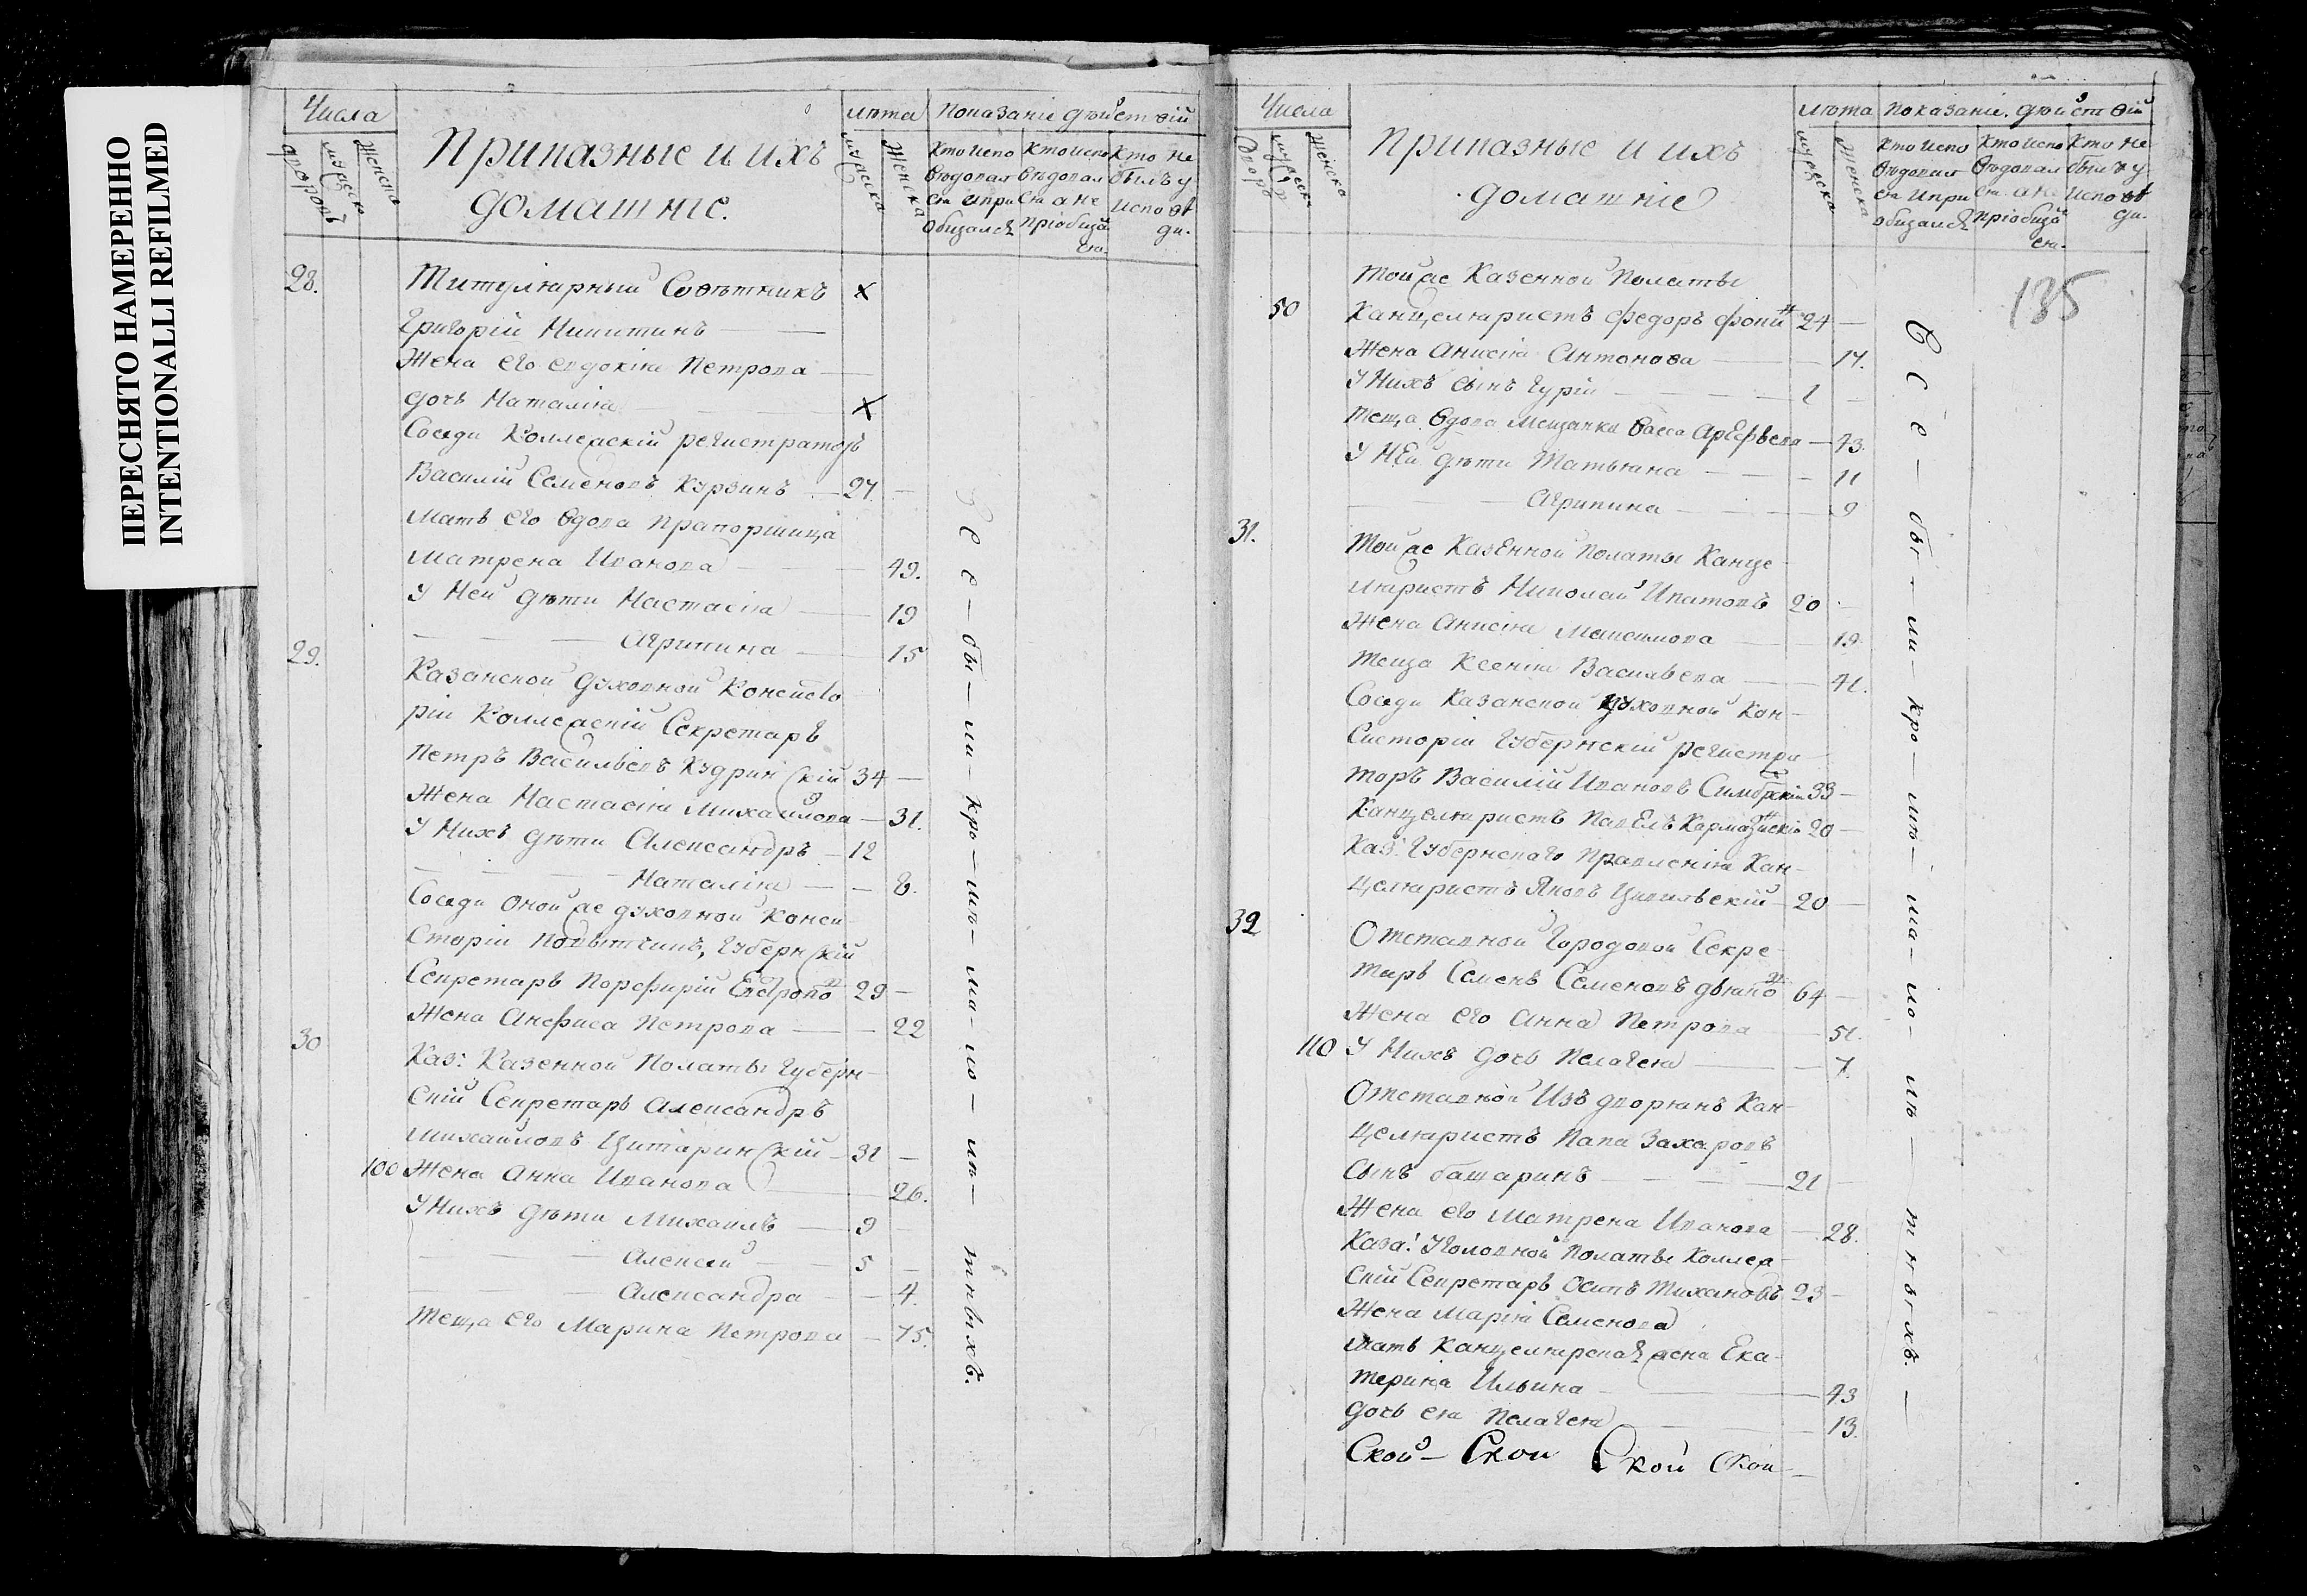 ПЕРЕСНЯТО НАМЕРЕННО
INTENTIONALLI REFILMED
Числа
дворовъ
мужеска
женска
Приказные и ихъ
домашніе.
лѣта
мужеска
женска
Показаніе дѣйствій
Кто испо
вѣдовал
ся и при
общался
Кто испо
вѣдовал
ся а не
пріобща
ся.
Кто не
былъ у
исповѣ
ди.
28. Титулярный Совѣтникъ х
Григорій Никитинъ
Жена его Евдокія Петрова
дочь Наталія х
Соседи Коллежскій регистраторъ
Василій Семеновъ Курзинъ 27
Мать его вдова прапорщица
Матрена Иванова 49.
У Ней дѣти Настасія 19
Агрипина 15
29. Казанской духовной Консисто
ріи Коллежскій Секретарь
Петръ Васильевъ Кудринскій 34
Жена Настасія Михайлова 31.
У Нихъ дѣти Александръ 12
Наталія 8.
Соседи Оной же духовной Конси
сторіи Повытчикъ, Губернскій
Секретарь Порфирій 29
Жена Анфиса Петрова 22
30 Каз: Казенной Полаты Губерн
скій Секретарь Александръ
Михайловъ Цитаринскій 31
100 Жена Анна Иванова 26.
У Нихъ дѣти Михаилъ 9
Алексей 5
Александра 4.
Теща его Марина Петрова 75.
Все были кро мѣ ма ло лѣ тныхъ.
Числа
дворо
мужеска
женска
Приказные и ихъ
домашніе
лѣта
мужеска
женска
Показаніе дѣйствій
Кто испо
вѣдовал
ся и при
общался
Кто испо
вѣдовал
ся а не
пріобща
ся.
Кто не
былъ у
исповѣ
ди.
135
Той же Казенной Полаты
50 Канцеляристъ Федоръ 24
Жена Анисія Антонова 17.
У Нихъ сынъ Гурій 1
Теща вдова Мещанка Васса Арефьева 43.
У Ней дѣти Татьяна 11
Агрипина 9
31. Той же Казенной Полаты Канце
ляристъ Николай Ипатовъ 20
Жена Анисія Максимова 19.
Теща Ксенія Васильева 41.
Соседи Казанской духовной Кон-
систоріи Губернскій регистра
торъ Василій Ивановъ Симбрскій 33
Канцеляристъ Павелъ 20
Каз: Губернскаго правленія Кан-
целяристъ Яковъ Цивильскій 20
32 Отставной Городовой Секре-
тарь Семенъ Семеновъ 64
Жена его Анна Петрова 51.
110 У Нихъ дочь Пелагея 7.
Отставной Изъ дворянъ Кан-
целяристъ Папа Захаровъ
Сынъ башаринъ 21
Жена его Матрена Иванова 28.
Каза: Уголовной Полаты Коллеж-
скій Секретарь Осипъ Тихановъ 23
Жена Марія Семенова
Мать Канцелярская жена Ека-
терина Ильина 43
дочь ея Пелагея 13.
Ской Ской Ской Ской
Все были кро мѣ ма ло лѣ тныхъ.